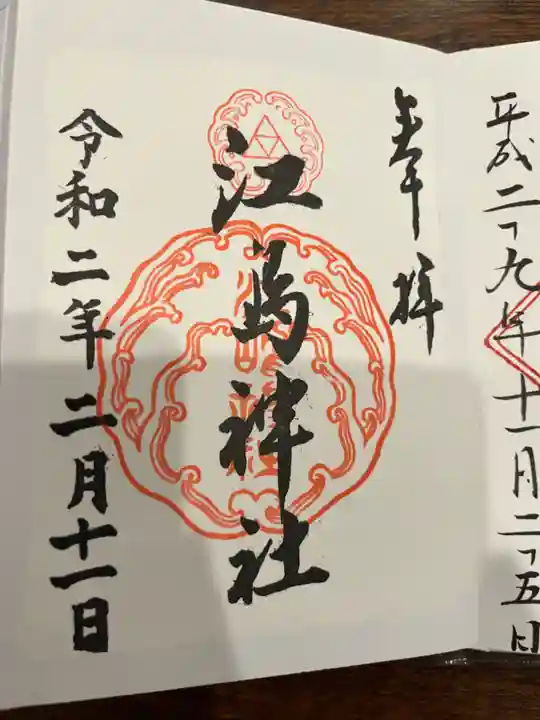 平成二十九年十一月二十五日
奉拝
江島神社
令和二年二月十一日